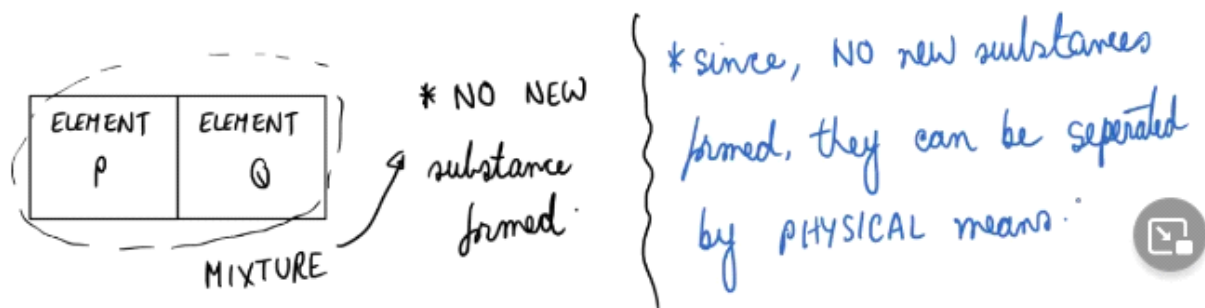 ELEMENT
P
ELEMENT
Q
MIXTURE
* NO NEW
substance
formed.
* since, NO new substances
formed, they can be seperated
by PHYSICAL means.